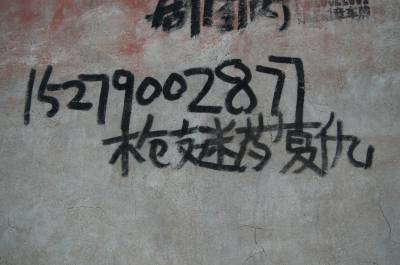 15279002877
枪支迷药复仇